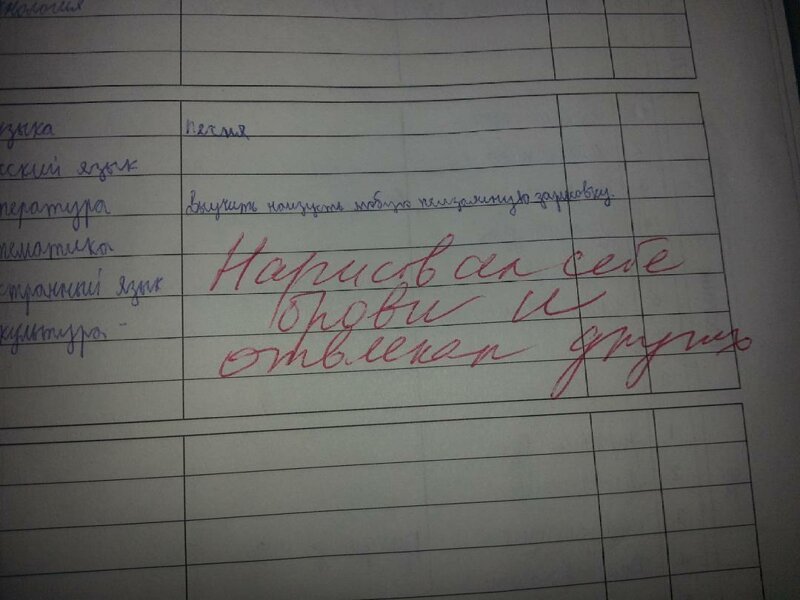 нология
узыка песня
сский язык
тература Выучить наизусть любую пейзажную зарисовку.
тематика
странный язык
культура -
Нарисовал себе
брови и
отвлекал других